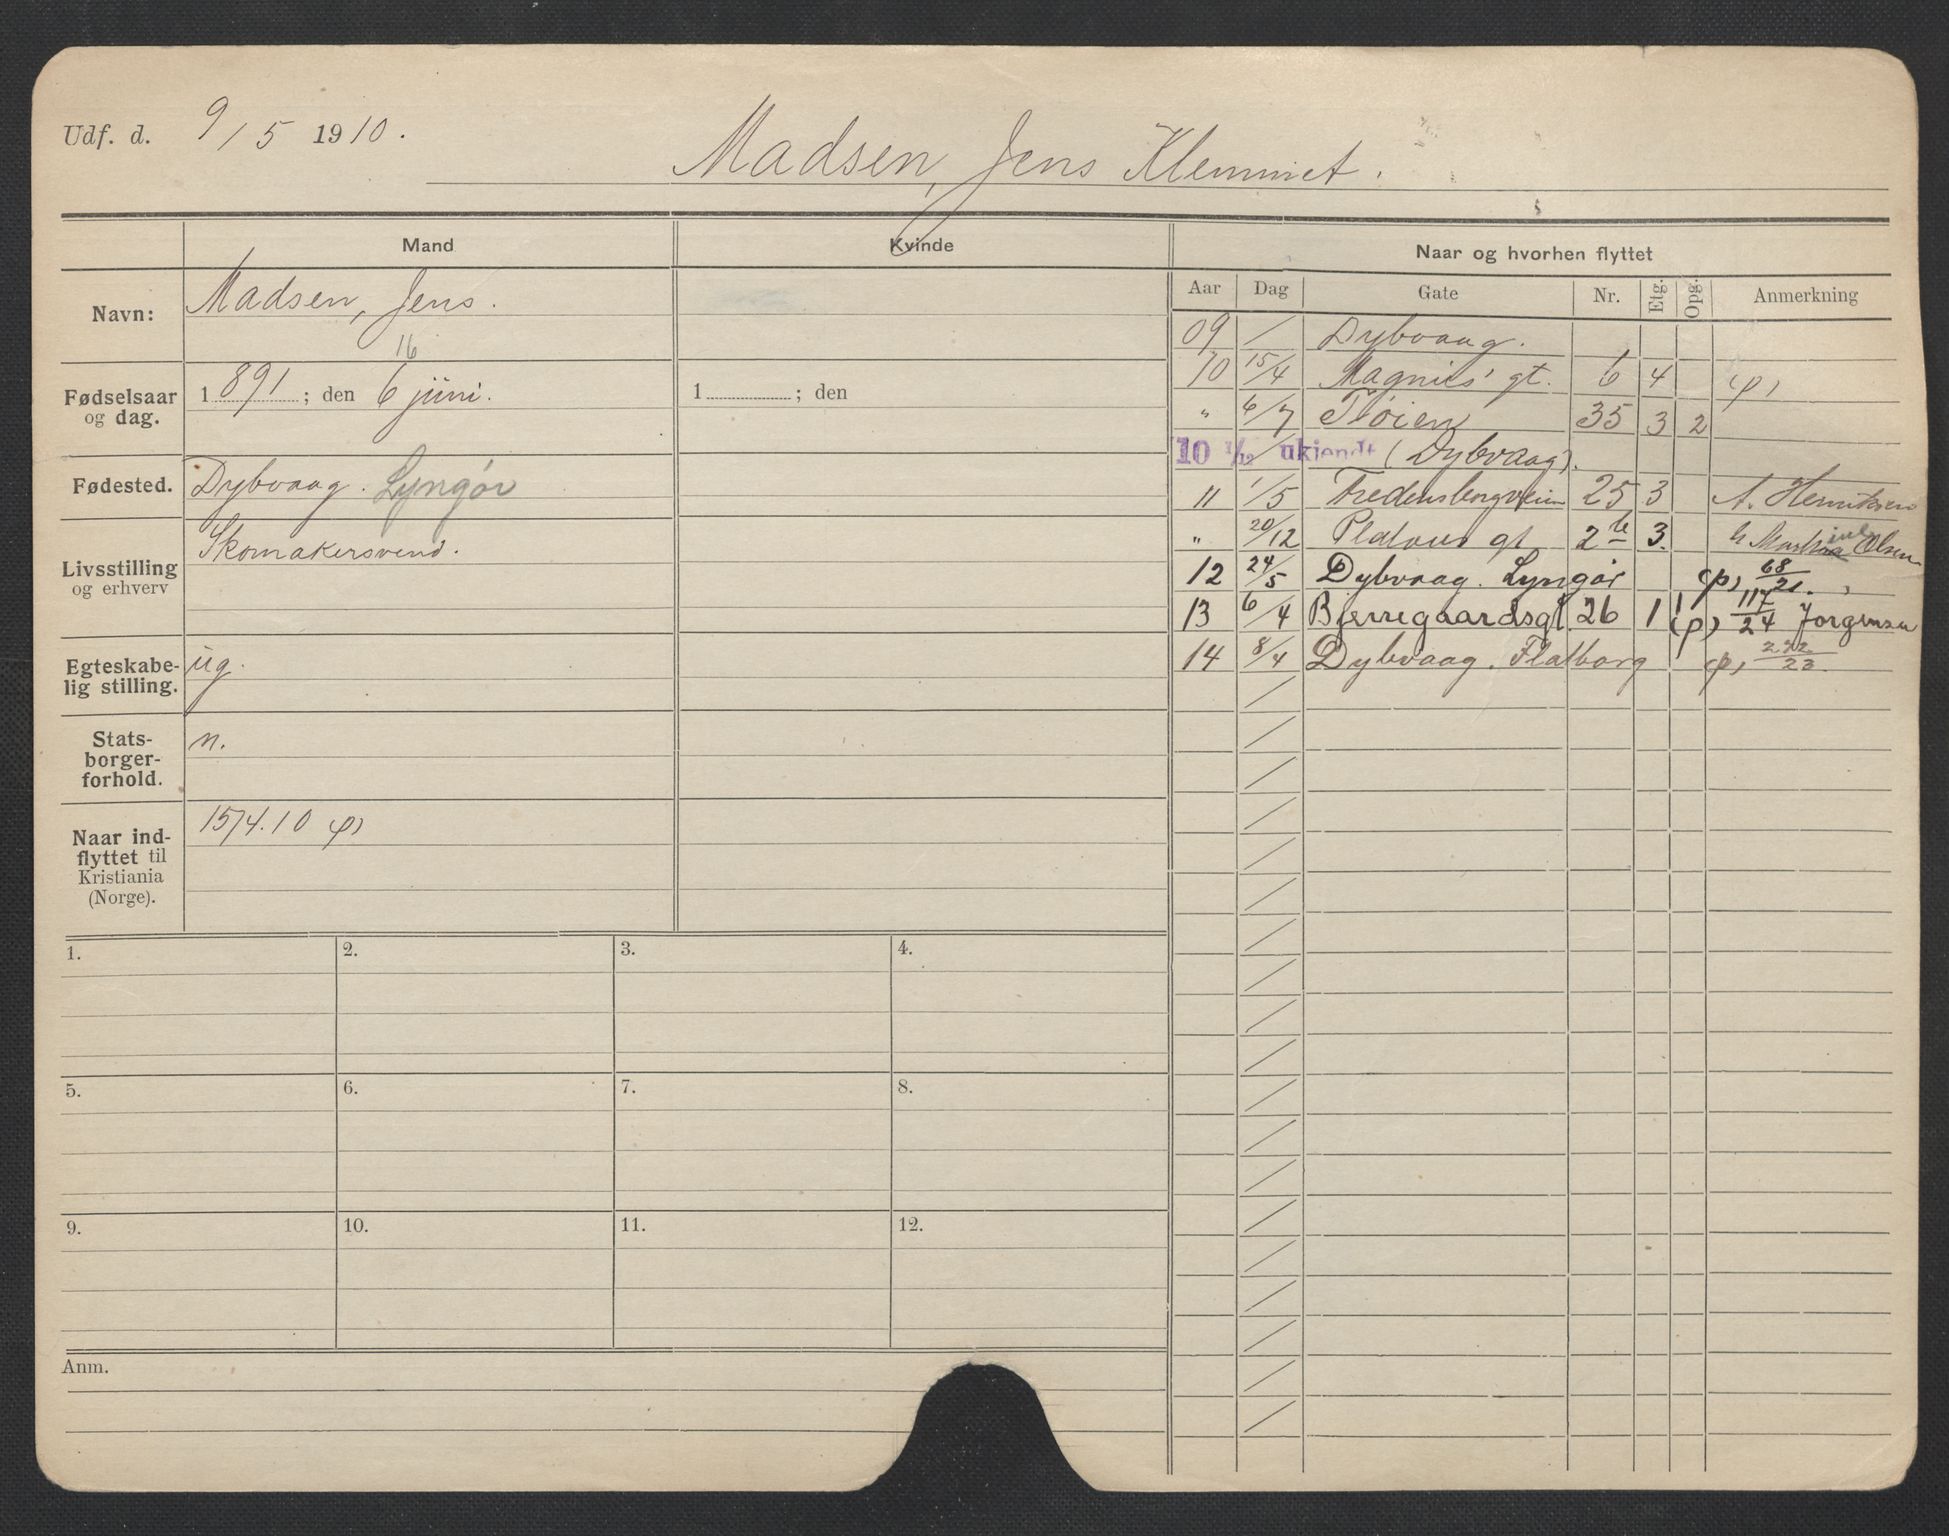 Udf. d. 9/5 1910.
Madsen, Jens Klemmet.
Mand
Kvinde
Naar og hvorhen flyttet
Navn: Madsen, Jens.
Fødselsaar og dag. 1 891 ; den 6 juni. 16
1 ; den
Fødested. Dybvaag. Lyngør
Livsstilling og erhverv Skomakersvend.
Egteskabe-
lig stilling. ug.
Stats-
borger-
forhold. n.
Naar ind-
flyttet til
Kristiania
(Norge). 15/4.10 (p)
Aar Dag Gate Nr. Etg. Opg. Anmerkning
09 / Dybvaag.
10 15/4 Magnus' gt. 6 4 (p)
" 6/7 Tøien 35 3 2
10 1/12 ukjendt (Dybvaag).
11 1/5 Fredensborgveien 25 3 A. Henriksen
" 20/12 Platous gt 2 b 3. Olsen
12 24/5 Dybvaag. Lyngør (p) 68/21.
13 6/4 Bjerregaardsgt. 26 1 1 (p) 117/24 Jorgensen
14 8/4 Dybvaag. Flatborg (p) 222/23.
1. 2. 3. 4.
5. 6. 7. 8.
9. 10. 11. 12.
Anm.